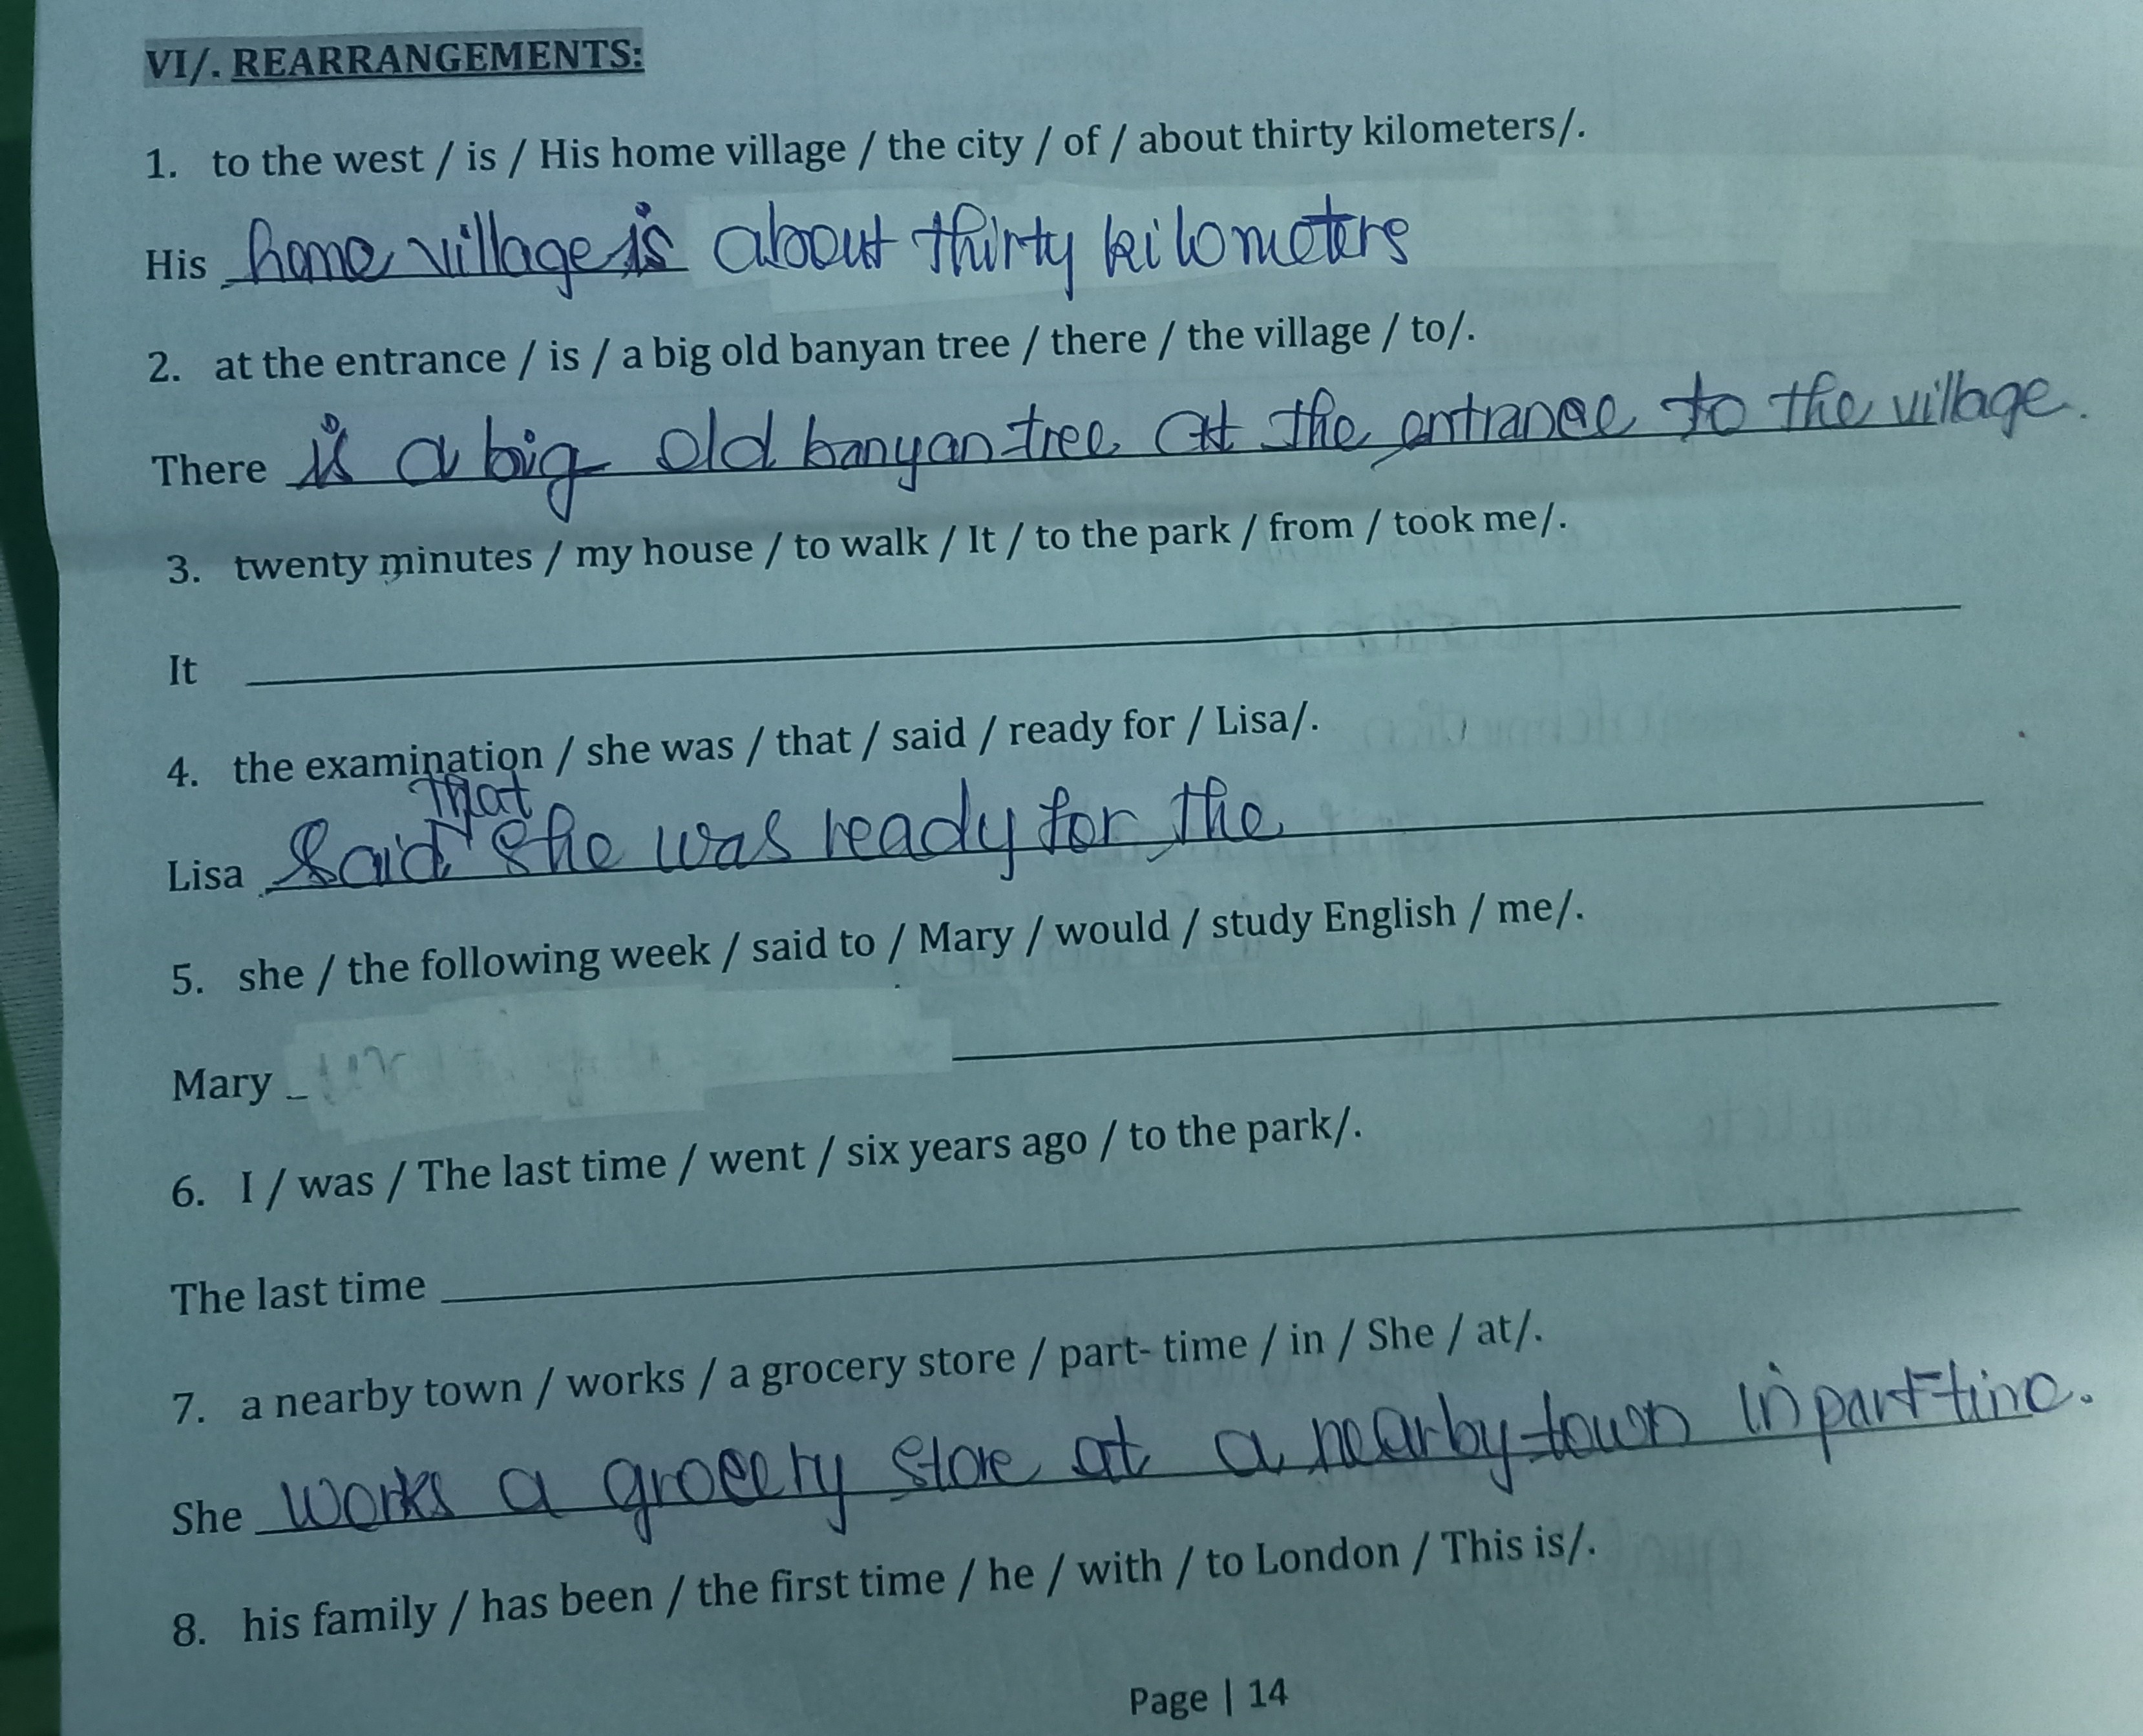 VI/. REARRANGEMENTS:
1. to the west / is / His home village / the city / of / about thirty kilometers/.
His home village is about thirty kilometers
2. at the entrance / is / a big old banyan tree / there / the village / to/.
There is a big old banyan tree at the entrance to the village.
3. twenty minutes / my house / to walk / It / to the park / from / took me/.
It
4. the examination / she was / that / said / ready for / Lisa/.
that
Lisa said she was ready for the
5. she / the following week / said to / Mary / would / study English / me/.
Mary
6. I / was / The last time / went / six years ago / to the park/.
The last time
7. a nearby town / works / a grocery store / part- time / in / She / at/.
She works a grocery store at a nearby town in part-time.
8. his family / has been / the first time / he / with / to London / This is/.
Page | 14